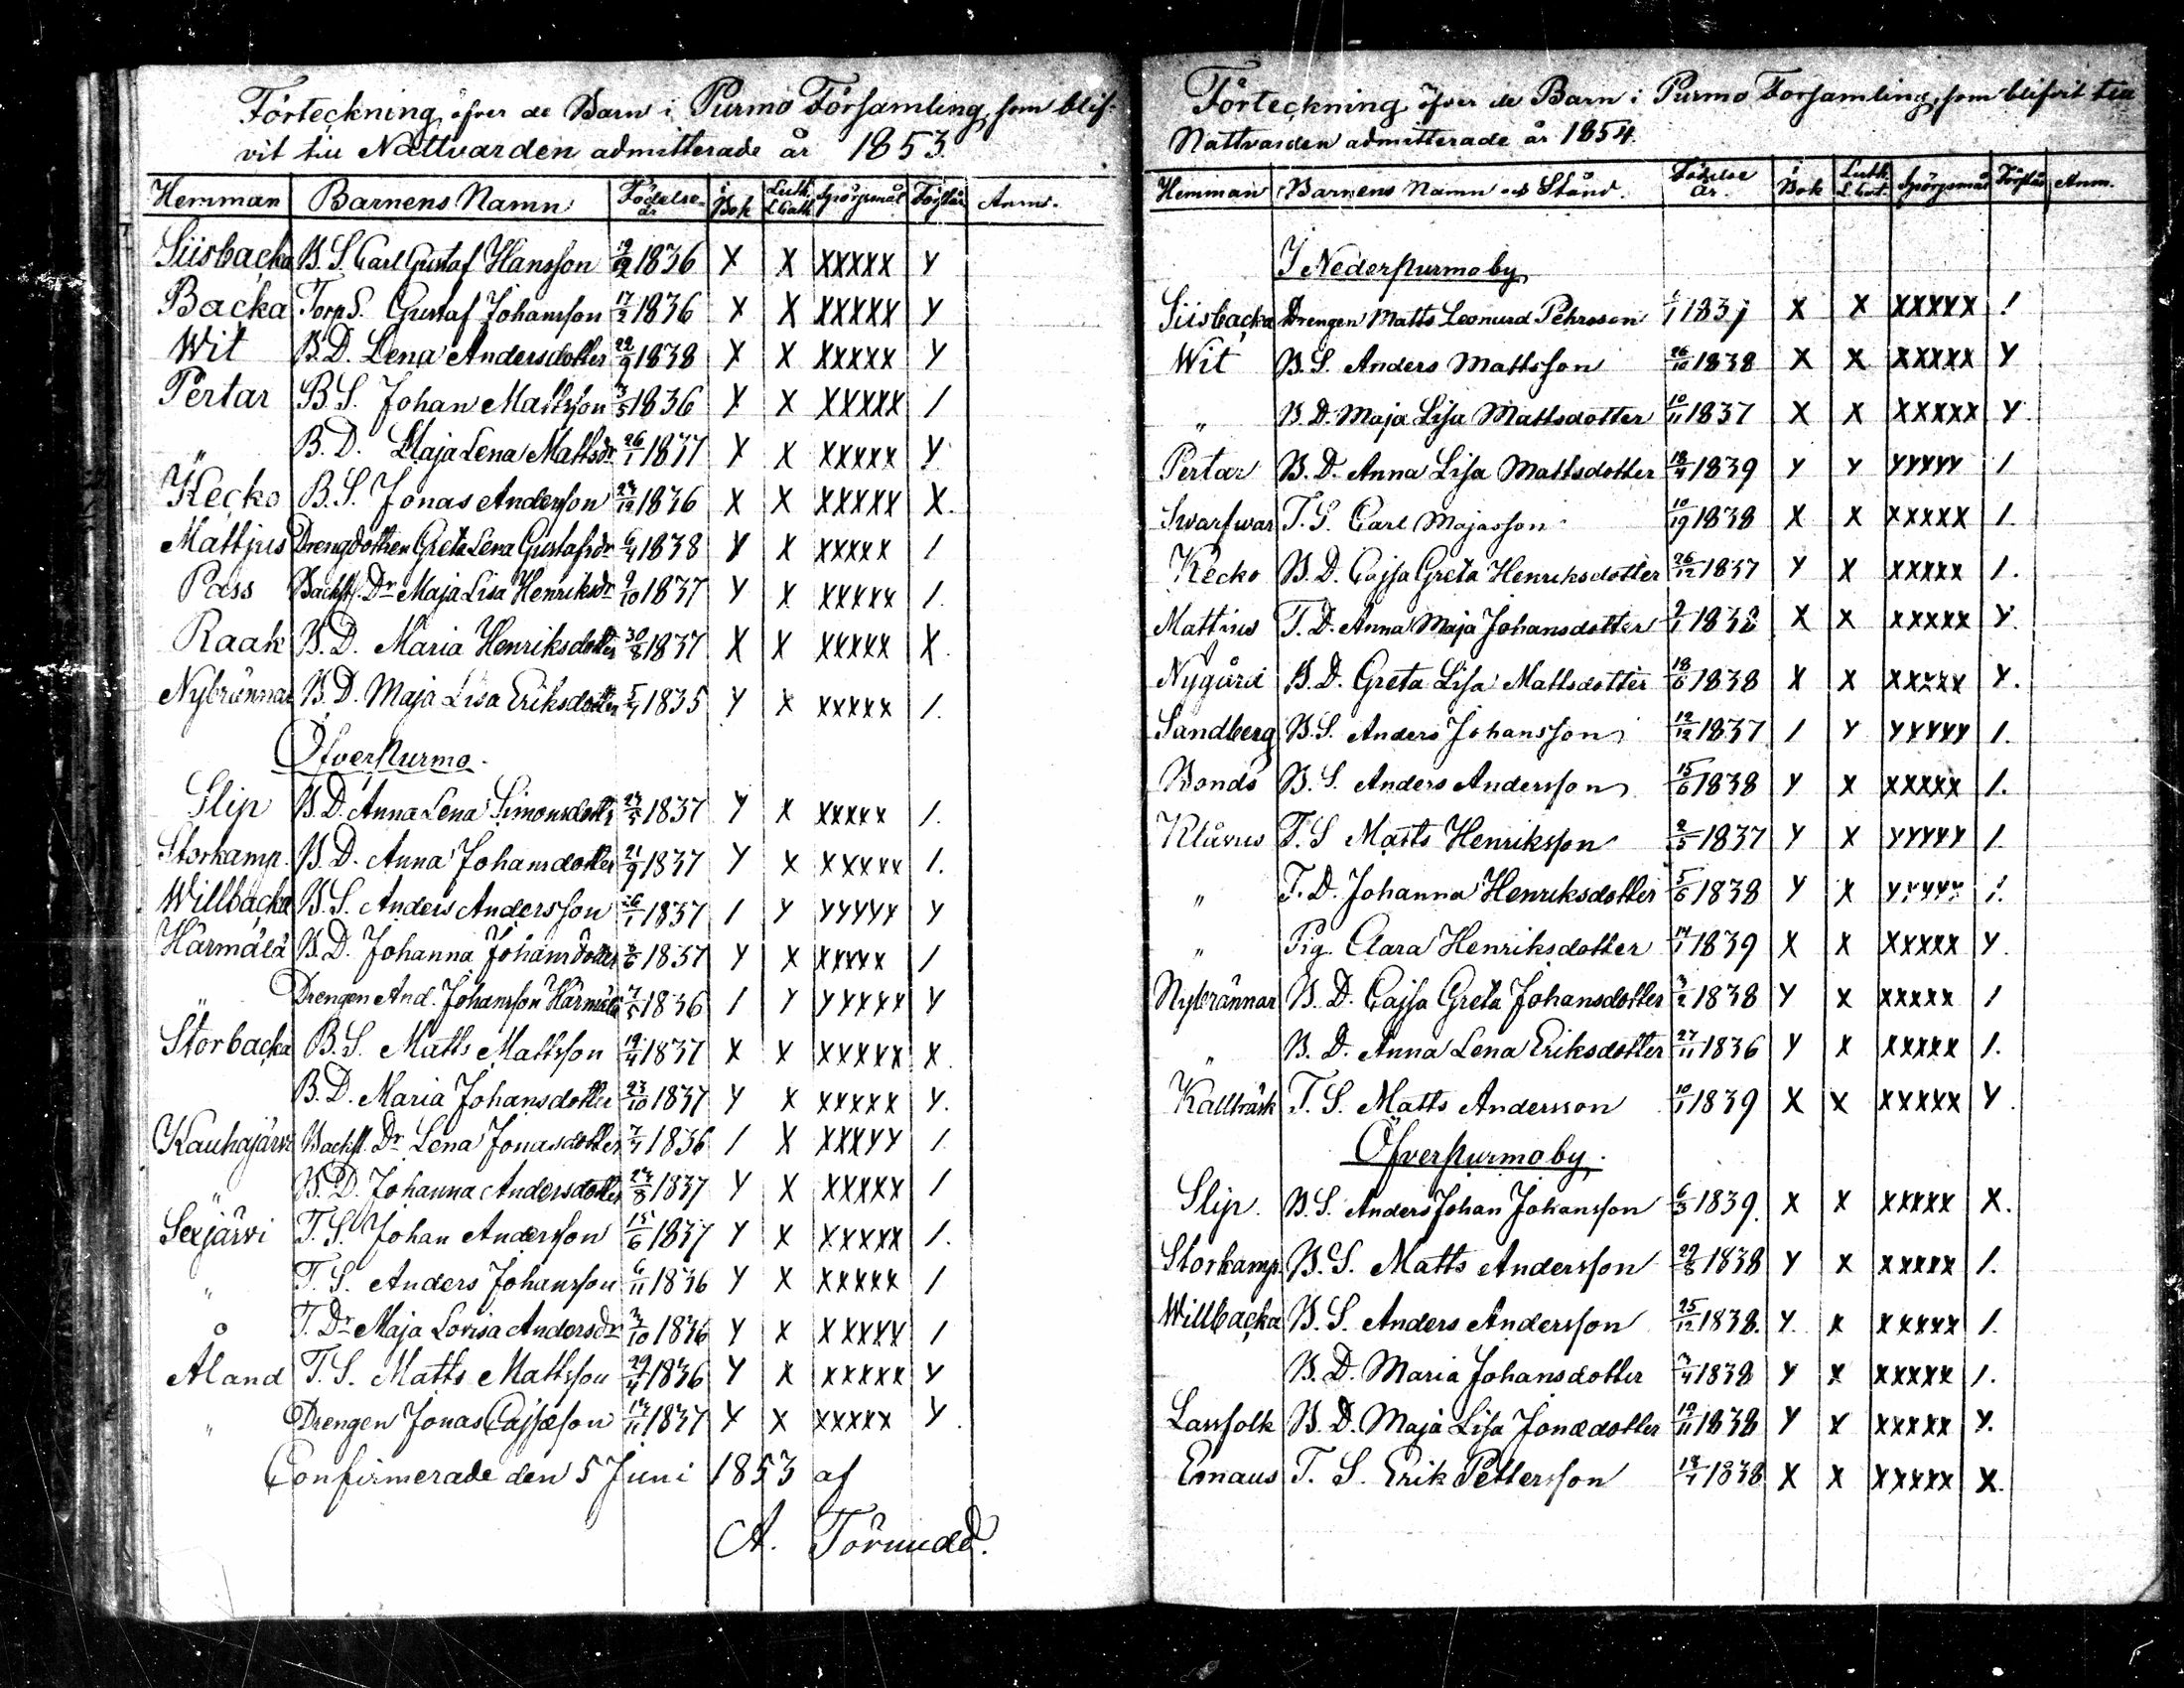 Förteckning öfver de Barn i Purmo Församling, som blif-
vit till Nattvarden admitterade år 1853.
Hemman Barnens Namn Födelse år i Bok Luth. L. Cath. Spörgsmål Förstår Anm.
Siisbacka B. S. Carl Gustaf Hansson 1836 Y X XXXXX Y
Backa Torp S. Gustaf Johansson 17/2 1836 X X XXXXX Y
Wit B. D. Lena Andersdotter 22/9 1838 X X XXXXX Y
Pertar B. S. Johan Mattsson 3/5 1836 Y X XXXXX /
" B. D. Maja Lena Mattsdr 26/1 1837 Y X XXXXX Y
Kecko B. S. Jonas Andersson 1836 X X XXXXX X.
Mattjus Drengdottren Greta Lena Gustafsdr 6/4 1838 Y X XXXXX /
Pass Backst. Dr Maja Lisa Henriksdr 9/10 1837 Y X XXXXX /.
Raak B. D. Maria Henriksdotter 30/8 1837 X X XXXXX X.
Nybrännar B. D. Maja Lisa Eriksdotter 1835 Y X XXXXX /.
Öfverpurmo.
Slip B. D. Anna Lena Simonsdottr 1837 Y X XXXXX /.
Storkamp. B. D. Anna Johansdotter 21/9 1837 Y X XXXXX /.
Willbacka B. S. Anders Andersson 26/1 1837 / Y YYYYY Y
Härmälä B. D. Johanna Johansdotter 1837 Y X XXXXX /
" Drengen And. Johansson Härmälä 1836 / Y YYXXX Y
Storbacka B. S. Matts Mattsson 19/4 1837 X X XXXXX X.
B. D. Maria Johansdotter 23/10 1837 Y X XXXXX Y.
Kauhajärvi Backst. Dr Lena Jonasdotter 1836 / X XXXYY /.
" B. D. Johanna Andersdotter 1837 Y X XXXXX /
Sexjärvi T. S. Johan Andersson 15/6 1837 Y X XXXXX /.
" T. S. Anders Johansson 6/11 1836 Y X XXXXX /
T. Dr Maja Lovisa Andersdr 3/10 1836 Y X XXXXX /
Åland T. S. Matts Mattsson 29/4 1836 Y X XXXXX Y
" Drengen Jonas Cajsæson 1837 Y X XXXXX Y.
Confirmerade den 5 Juni 1853 af
A. Törnudd.
Förteckning öfver de Barn i Purmo Forsamling, som blifvit till
Nattvarden admitterade år 1854.
Hemman Barnens Namn och Stånd. Födelse år. i Bok Luth. L. Cat. Spörgsmål Förstår Anm.
I Nederpurmo by
Siisbacka Drengen Matts Leonard Pehrsson 1837 X X XXXXX /
Wit B. S. Anders Mattsson 26/10 1838 X X XXXXX Y
" B. D. Maja Lisa Mattsdotter 10/11 1837 X X XXXXX Y
Pertar B. D. Anna Lisa Mattsdotter 1839 Y Y YYYYY /
Svarfvar T. S. Carl Majasson 1838 X X XXXXX /.
Kecko B. D. Cajsa Greta Henriksdotter 26/12 1837 Y X XXXXX /.
Mattjus T. D. Anna Maja Johansdotter 1838 X X XXXXX Y.
Nygård B. D. Greta Lisa Mattsdotter 18/6 1838 X X XXXXX Y.
Sandberg B. S. Anders Johansson 12/12 1837 / Y YYYYY /.
Bonds B. S. Anders Andersson 15/6 1838 Y X XXXXX /.
Klåvus T. S. Matts Henriksson 1837 Y X YYYYY /.
" T. D. Johanna Henriksdotter 5/6 1838 Y X YYYYY /.
" Pig. Clara Henriksdotter 14/1 1839 X X XXXXX Y.
Nybrännar B. D. Cajsa Greta Johansdotter 3/2 1838 Y X XXXXX /
" B. D. Anna Lena Eriksdotter 27/11 1836 Y X XXXXX /.
Källträsk T. S. Matts Andersson 10/1 1839 X X XXXXX Y.
Öfverpurmo by.
Slip. B. S. Anders Johan Johansson 6/3 1839. X X XXXXX X.
Storkamp. B. S. Matts Andersson 29/8 1838 Y X XXXXX /.
Willbacka B. S. Anders Andersson 25/12 1838. Y. X XXXXX /.
B. D. Maria Johansdotter 3/4 1838 Y X XXXXX /.
Lassfolk B. D. Maja Lisa Jonædotter 19/11 1838 Y X XXXXX Y.
Emaus T. S. Erik Pettersson 1838 X X XXXXX X.